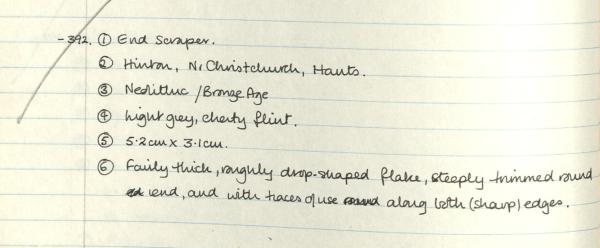 -392. ① End Scraper.
② Hinton, Nr Christchurch, Hants.
③ Neolithic / Bronze Age
④ Light grey, cherty flint.
⑤ 5.2cm x 3.1cm.
⑥ Fairly thick, roughly drop-shaped flake, steeply trimmed round
end, and with traces of use along both (sharp) edges.